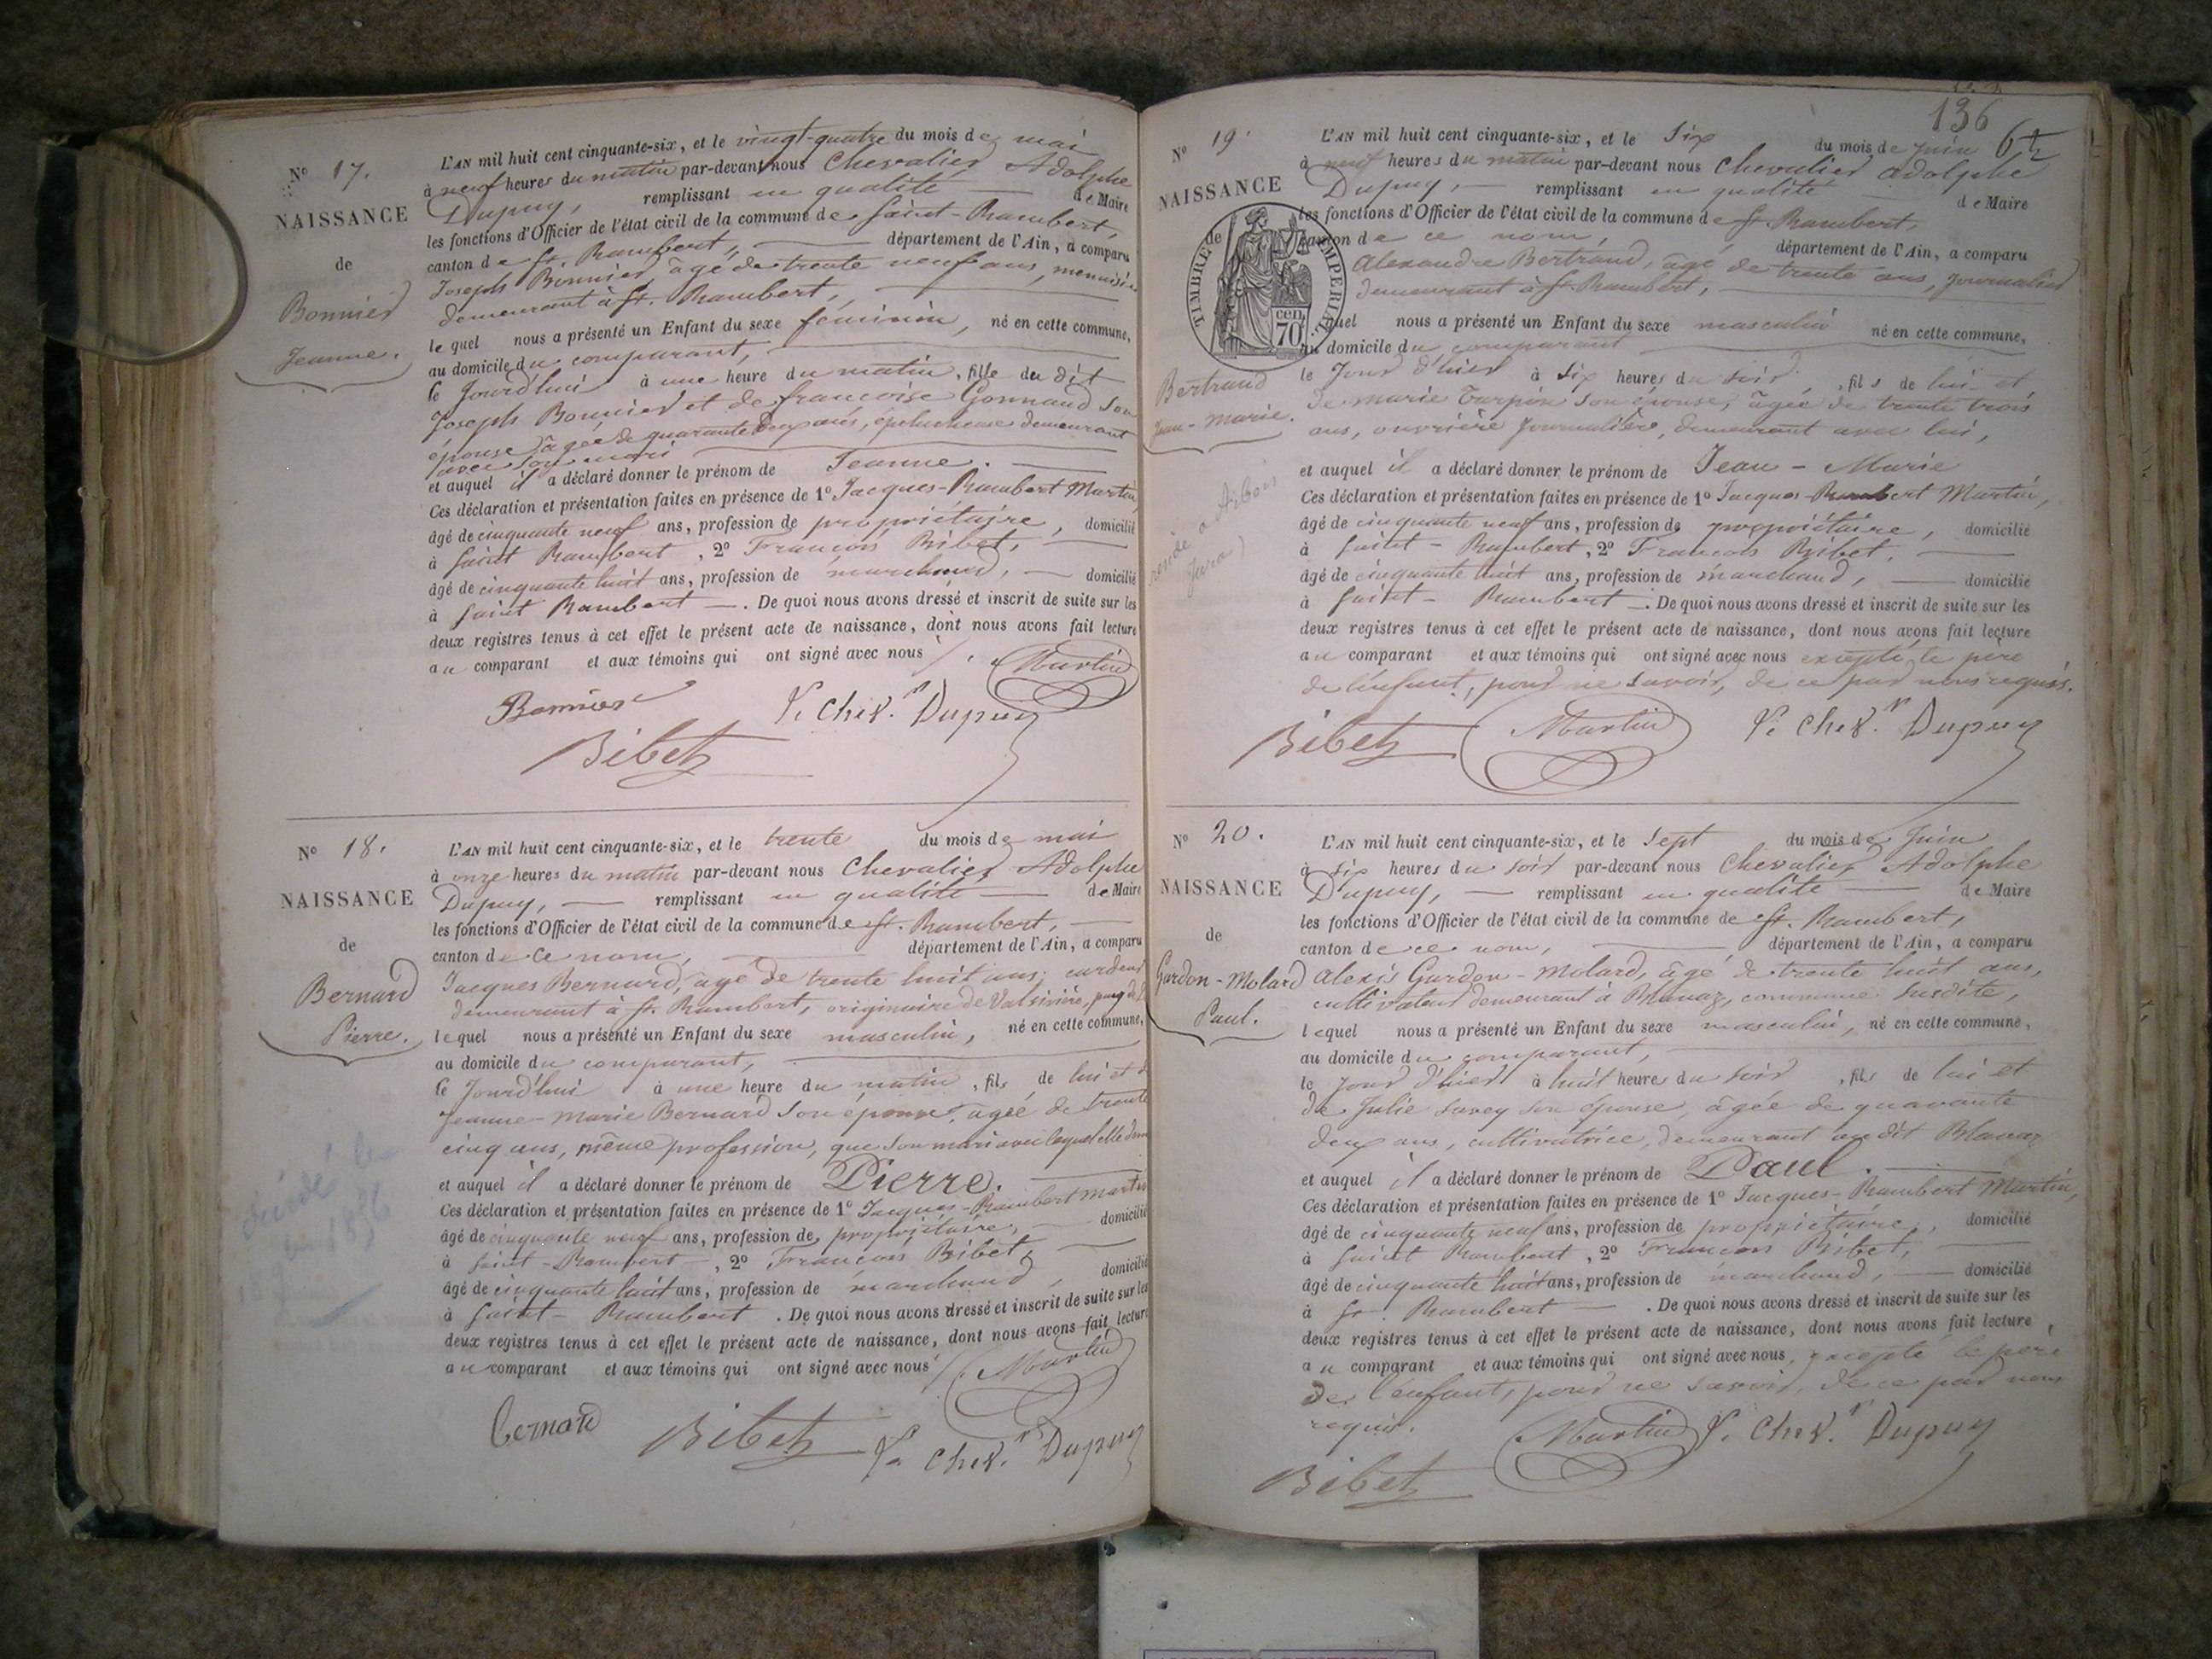 N° 17.
NAISSANCE
de
Bonnier
Jeanne.
L'AN mil huit cent cinquante-six, et le vingt-quatre du mois de mai
à neuf heures du matin par-devant nous Chevalier Adolphe
Dupuy, remplissant en qualité de Maire
les fonctions d'Officier de l'état civil de la commune de Saint-Rambert,
canton de St. Rambert, département de l'Ain, a comparu
Joseph Bonnier, âgé de trente neuf ans, menuisier
demeurant à St. Rambert,
le quel nous a présenté un Enfant du sexe féminin, né en cette commune,
au domicile du comparant,
ce Jourd'hui à une heure du matin, fille du dit
Joseph Bonnier et de françoise Gonnaud son
épouse âgée de quarante deux ans, éplucheuse demeurant
avec son mari
et auquel il a déclaré donner le prénom de Jeanne.
Ces déclaration et présentation faites en présence de 1° Jacques-Rambert Martin,
âgé de cinquante neuf ans, profession de propriétaire, domicilié
à Saint Rambert, 2° François Bibet,
âgé de cinquante huit ans, profession de marchand, domicilié
à Saint Rambert. De quoi nous avons dressé et inscrit de suite sur les
deux registres tenus à cet effet le présent acte de naissance, dont nous avons fait lecture
au comparant et aux témoins qui ont signé avec nous
Martin
Bonnier Chev.r Dupuy
Bibet
N° 18.
NAISSANCE
de
Bernard
Pierre.
décédé le
1896
L'AN mil huit cent cinquante-six, et le trente du mois de mai
à onze heures du matin par-devant nous Chevalier Adolphe
Dupuy, remplissant en qualité de Maire
les fonctions d'Officier de l'état civil de la commune de St. Rambert,
canton de ce nom, département de l'Ain, a comparu
Jacques Bernard, âgé de trente huit ans, cardeur
demeurant à St. Rambert, originaire de Valsivière, puy de
lequel nous a présenté un Enfant du sexe masculin, né en cette commune,
au domicile du comparant,
ce Jourd'hui à une heure du matin, fils de lui et de
Jeanne-Marie Bernard son épouse, âgée de trente
cinq ans, même profession, que son mari avec lequel elle dem
et auquel il a déclaré donner le prénom de Pierre.
Ces déclaration et présentation faites en présence de 1° Jacques-Rambert Martin
âgé de cinquante neuf ans, profession de propriétaire, domicilié
à Saint-Rambert, 2° François Bibet,
âgé de cinquante huit ans, profession de marchand, domicilié
à Saint-Rambert. De quoi nous avons dressé et inscrit de suite sur les
deux registres tenus à cet effet le présent acte de naissance, dont nous avons fait lecture
au comparant et aux témoins qui ont signé avec nous
Martin
bernard Bibet Chev.r Dupuy
136
N° 19.
NAISSANCE
de
TIMBRE IMPERIAL
70 cen.
Bertrand
Jean-Marie.
à Arbois
Jura)
L'AN mil huit cent cinquante-six, et le Six du mois de Juin
à neuf heures du matin par-devant nous Chevalier Adolphe
Dupuy, remplissant en qualité de Maire
les fonctions d'Officier de l'état civil de la commune de St. Rambert,
canton de ce nom, département de l'Ain, a comparu
Alexandre Bertrand, âgé de trente ans, Journalier
demeurant à St. Rambert,
lequel nous a présenté un Enfant du sexe masculin né en cette commune,
au domicile du comparant
le Jour d'hier à six heures du soir, fils de lui et
de marie Turpin son épouse, âgée de trente trois
ans, ouvrière Journalière, demeurant avec lui,
et auquel il a déclaré donner le prénom de Jean-Marie
Ces déclaration et présentation faites en présence de 1° Jacques-Rambert Martin,
âgé de cinquante neuf ans, profession de propriétaire, domicilié
à Saint-Rambert, 2° François Bibet,
âgé de cinquante huit ans, profession de marchand, domicilié
à Saint-Rambert. De quoi nous avons dressé et inscrit de suite sur les
deux registres tenus à cet effet le présent acte de naissance, dont nous avons fait lecture
au comparant et aux témoins qui ont signé avec nous excepté le père
de l'enfant, pour ne savoir, de ce par nous requis.
Bibet Martin Chev.r Dupuy
N° 20.
NAISSANCE
de
Gardon-Molard
Paul.
L'AN mil huit cent cinquante-six, et le Sept du mois de Juin
à six heures du soir par-devant nous Chevalier Adolphe
Dupuy, remplissant en qualité de Maire
les fonctions d'Officier de l'état civil de la commune de St. Rambert,
canton de ce nom, département de l'Ain, a comparu
Alexis Gardon-Molard, âgé de trente huit ans,
cultivateur demeurant à Blanaz, commune susdite,
lequel nous a présenté un Enfant du sexe masculin, né en cette commune,
au domicile du comparant,
le jour d'hier à huit heures du soir, fils de lui et
de Julie Savey son épouse, âgée de quarante
deux ans, cultivatrice, demeurant au dit Blanaz
et auquel il a déclaré donner le prénom de Paul.
Ces déclaration et présentation faites en présence de 1° Jacques-Rambert Martin,
âgé de cinquante neuf ans, profession de propriétaire, domicilié
à Saint Rambert, 2° François Bibet,
âgé de cinquante huit ans, profession de marchand, domicilié
à St. Rambert. De quoi nous avons dressé et inscrit de suite sur les
deux registres tenus à cet effet le présent acte de naissance, dont nous avons fait lecture
au comparant et aux témoins qui ont signé avec nous, excepté le père
de l'enfant, pour ne savoir, de ce par nous
requis.
Martin Chev.r Dupuy
Bibet